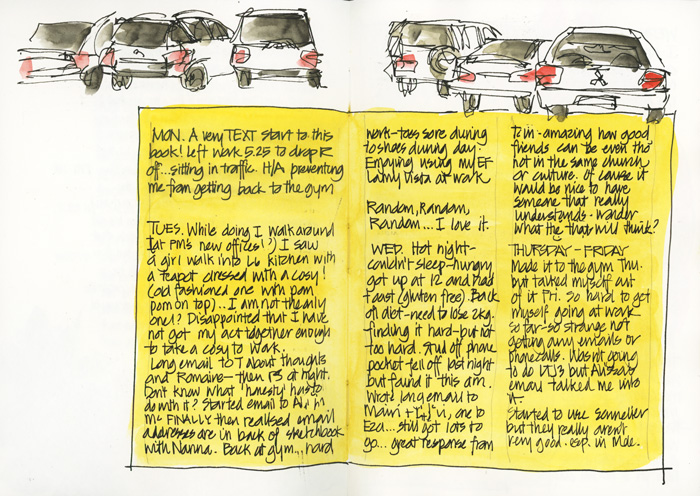 MON. A very TEXT start to this
book! Left work 5.25 to drop R
off...sitting in traffic. H/A preventing
me from getting back to the gym
TUES. While doing I walk around
(at PM's new offices!?) I saw
a girl walk into L6 kitchen with
a teapot dressed with a cosy!
(old fashioned one with pom
pom on top)... I am not the only
one!? Disappointed that I have
not got my act together enough
to take a cosy to work.
Long email to T about thoughts
and Romaine - then at night.
Don't know what 'honesty' has to
do with it? Started email to in
mc FINALLY then realised email
addresses are in back of sketchbook
with Nanna. Back at gym... hard
work-toes sore during
to shoes during day.
Enjoying using my EF
Lamy vista at work
Random, Random,
Random... I love it.
WED. Hot night-
couldn't sleep-hungry
got up at 12 and had
toast (gluten free). Back
on diet-need to lose 2kg.
finding it hard-but not
too hard. Stud off phone
pocket fell off last night
but found it this am.
Wrote long email to
Mairi + , one to
Eza... still got lots to
go... great response from
- amazing how good
friends can be even tho
not in the same church
or culture. Of cause it
would be nice to have
someone that really
understands. Wonder
what the that will think?
THURSDAY - FRIDAY
Made it to the gym Thu.
but talked myself out
of it Fri. So hard to get
myself going at work
so far-so strange not
getting any emails or
phonecalls. Was not going
to do but Alissa's
email talked me into
it.
Started to use Sennelier
but they really aren't
very good. esp. in Mole.